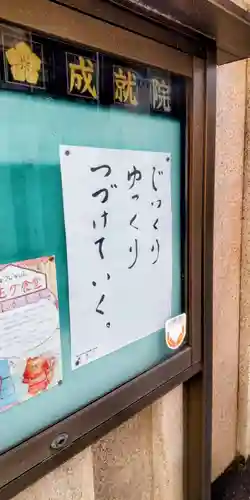 成就院
じっくり
ゆっくり
つづけていく。